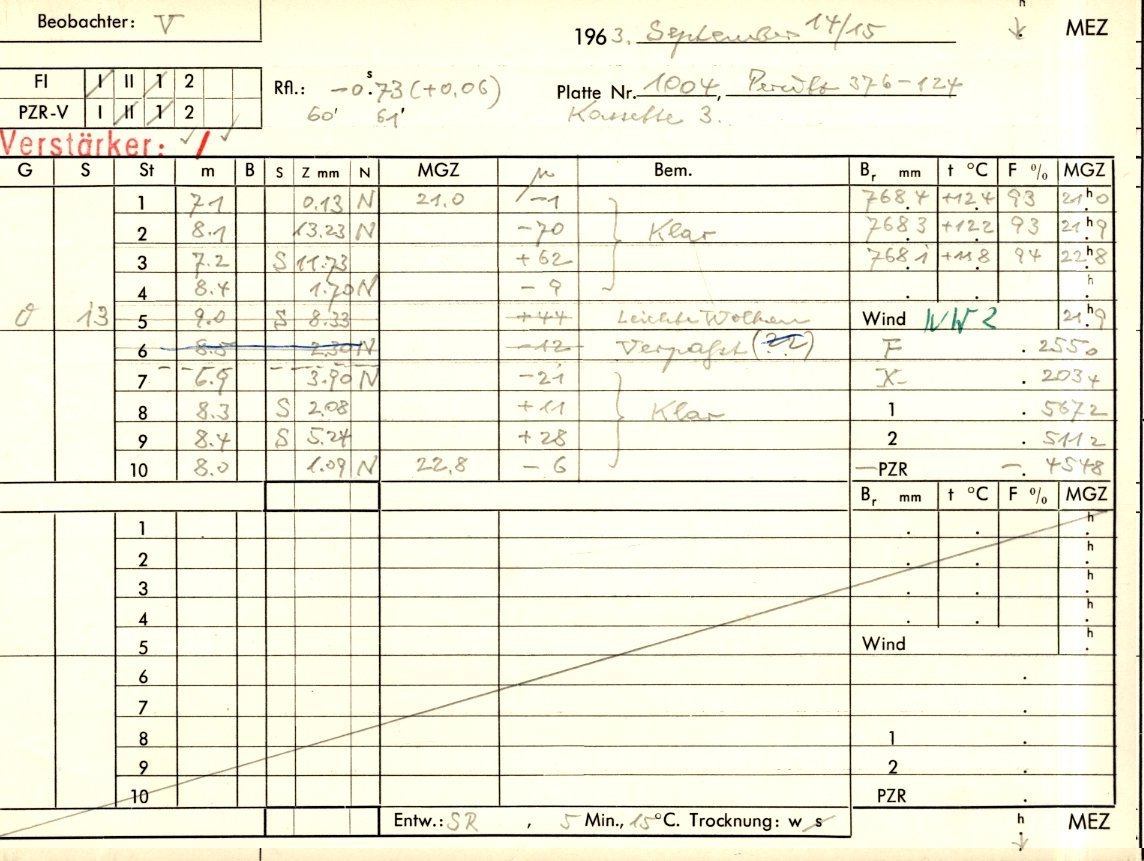 Beobachter: V
1963. September 14/15 h MEZ
FI I II 1 2
PZR-V I II 1 2
Rfl.: -0.ˢ73 (+0.06)
60' 61'
Platte Nr. 1004, Perutz 376-124
Kassette 3.
Verstärker:
G S St m B S Z mm N MGZ μ Bem. Bᵣ mm t °C F % MGZ
1 7.1 0.13 N 21.0 -1 768.4 +12.4 93 21ʰ0
2 8.1 13.23 N -70 Klar 768.3 +12.2 93 21ʰ9
3 7.2 S 11.73 +62 768.1 +11.8 94 22ʰ8
4 8.4 1.70 N -9 h
σ 13 5 9.0 S 8.33 +44 Leichte Wolken Wind NW 2 21ʰ9
6 8.5 2.30 N -12 Verpaßt (22) F .2550
7 6.9 3.90 N -21 X .2034
8 8.3 S 2.08 +11 Klar 1 .5672
9 8.4 S 5.24 +28 2 .5112
10 8.0 1.09 N 22.8 -6 -PZR -.4548
Bᵣ mm t °C F % MGZ
1 h
2 h
3 h
4 h
5 Wind h
6
7
8 1
9 2
10 PZR
Entw.: SR , 5 Min., 15°C. Trocknung: w s h MEZ